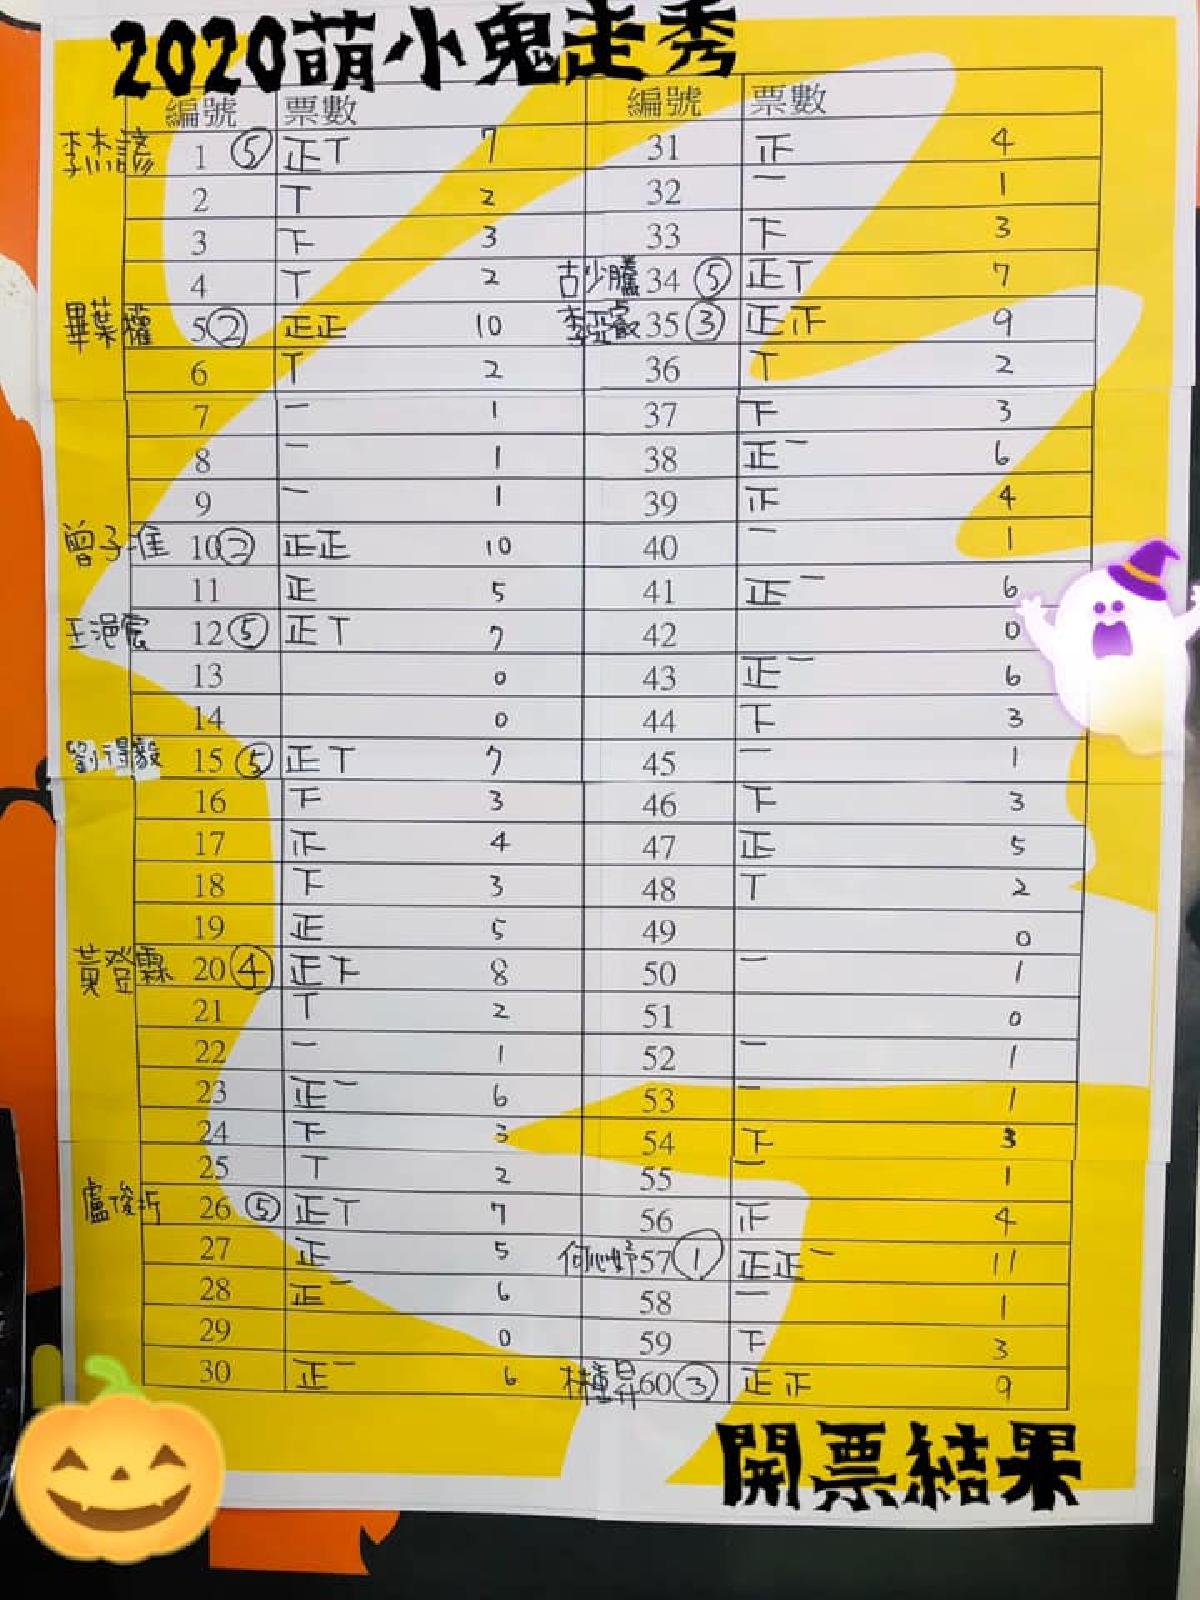 2020萌小鬼走秀
編號 票數 編號 票數
李杰諺 1 ⑤ 正丅 7 31 正 4
2 丅 2 32 一 1
3 下 3 33 下 3
4 丅 2 古少騰 34 ⑤ 正丅 7
畢葉權 5 ② 正正 10 李亞叡 35 ③ 正正 9
6 丅 2 36 丅 2
7 一 1 37 下 3
8 一 1 38 正一 6
9 一 1 39 正 4
曾子淮 10 ② 正正 10 40 一 1
11 正 5 41 正一 6
王浥宸 12 ⑤ 正丅 7 42 0
13 0 43 正一 6
14 0 44 下 3
劉得毅 15 ⑤ 正丅 7 45 一 1
16 下 3 46 下 3
17 正 4 47 正 5
18 下 3 48 丅 2
19 正 5 49 0
黃登霖 20 ④ 正下 8 50 一 1
21 丅 2 51 0
22 一 1 52 一 1
23 正一 6 53 一 1
24 下 3 54 下 3
25 丅 2 55 一 1
盧俊沂 26 ⑤ 正丅 7 56 正 4
27 正 5 何心妤 57 ① 正正一 11
28 正一 6 58 一 1
29 0 59 下 3
30 正一 6 林重昇 60 ③ 正正 9
開票結果